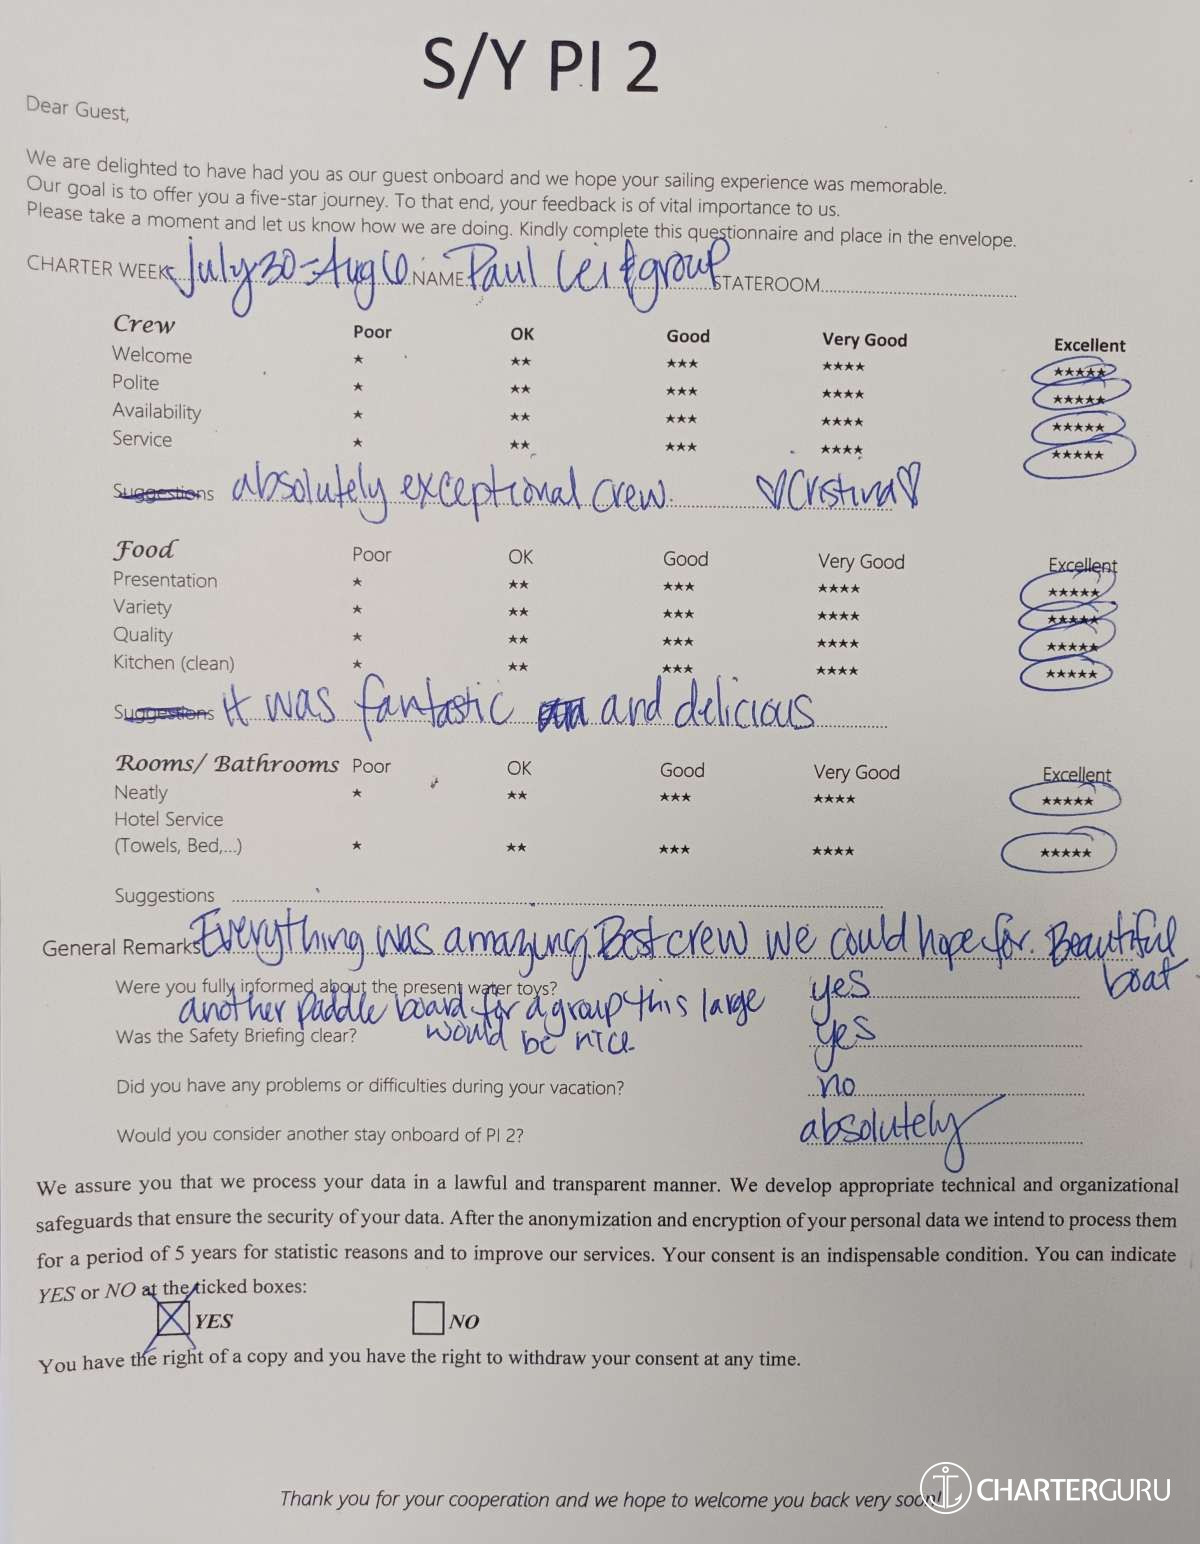 S/Y PI 2
Dear Guest,
We are delighted to have had you as our guest onboard and we hope your sailing experience was memorable.
Our goal is to offer you a five-star journey. To that end, your feedback is of vital importance to us.
Please take a moment and let us know how we are doing. Kindly complete this questionnaire and place in the envelope.
CHARTER WEEK July 30-Aug 6 NAME Paul Lei & group STATEROOM
Crew Poor OK Good Very Good Excellent
Welcome ★ ★★ ★★★ ★★★★ ★★★★★
Polite ★ ★★ ★★★ ★★★★ ★★★★★
Availability ★ ★★ ★★★ ★★★★ ★★★★★
Service ★ ★★ ★★★ ★★★★ ★★★★★
Suggestions absolutely exceptional crew. ♡Cristina♡
Food Poor OK Good Very Good Excellent
Presentation ★ ★★ ★★★ ★★★★ ★★★★★
Variety ★ ★★ ★★★ ★★★★ ★★★★★
Quality ★ ★★ ★★★ ★★★★ ★★★★★
Kitchen (clean) ★ ★★ ★★★ ★★★★ ★★★★★
Suggestions it was fantastic and delicious
Rooms/ Bathrooms Poor OK Good Very Good Excellent
Neatly ★ ★★ ★★★ ★★★★ ★★★★★
Hotel Service
(Towels, Bed,...) ★ ★★ ★★★ ★★★★ ★★★★★
Suggestions
General Remarks Everything was amazing. Best crew we could hope for. Beautiful
boat
Were you fully informed about the present water toys? yes
another paddle board for a group this large
would be nice
Was the Safety Briefing clear? yes
Did you have any problems or difficulties during your vacation? no
Would you consider another stay onboard of PI 2? absolutely
We assure you that we process your data in a lawful and transparent manner. We develop appropriate technical and organizational
safeguards that ensure the security of your data. After the anonymization and encryption of your personal data we intend to process them
for a period of 5 years for statistic reasons and to improve our services. Your consent is an indispensable condition. You can indicate
YES or NO at the ticked boxes:
YES NO
You have the right of a copy and you have the right to withdraw your consent at any time.
Thank you for your cooperation and we hope to welcome you back very soon!
CHARTERGURU